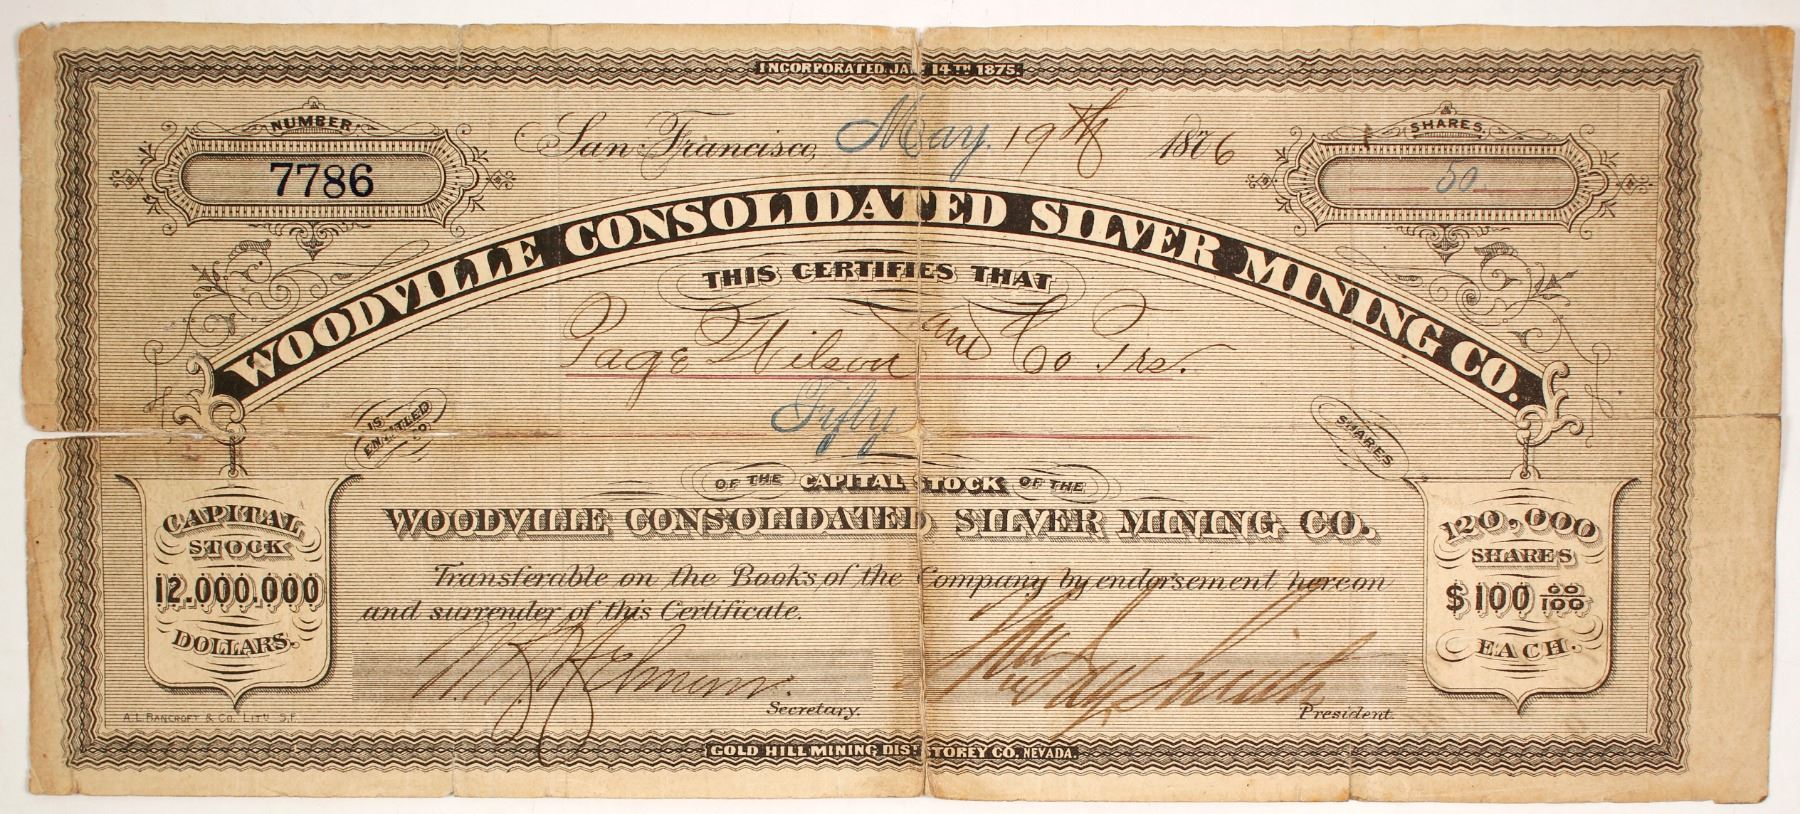 INCORPORATED JAN 14TH 1875.
NUMBER
7786
San Francisco, May. 19th 1876
SHARES.
50
WOODVILLE CONSOLIDATED SILVER MINING CO.
THIS CERTIFIES THAT
Page Wilson and Co Trs.
IS ENTITLED TO
Fifty
SHARES
OF THE CAPITAL STOCK OF THE
WOODVILLE CONSOLIDATED SILVER MINING CO.
CAPITAL
STOCK
12.000.000
DOLLARS.
120,000
SHARES
$100 00/100
EACH.
Transferable on the Books of the Company by endorsement hereon
and surrender of this Certificate.
Secretary.
President.
A.L. BANCROFT & CO. LITH. S.F.
GOLD HILL MINING DIST. STOREY CO. NEVADA.